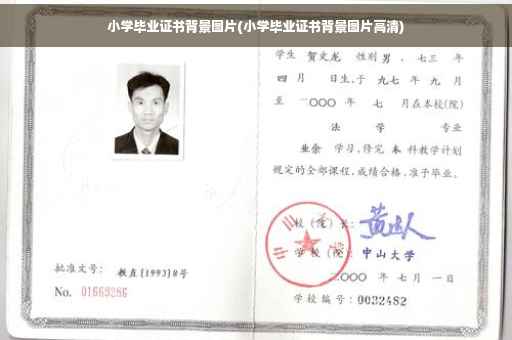 小学毕业证书背景图片(小学毕业证书背景图片高清)
学生 贺文龙 性别 男 、七三 年
四 月 日生,于 九七 年 九 月
至 二○○○ 年 七 月在本校(院)
法 学 专业
业余 学习,修完 本 科教学计划
规定的全部课程,成绩合格,准予毕业。
校(院)长:
学校(院): 中山大学
二○○○ 年 七 月 一 日
学校编号: 0032482
批准文号: 教直(1993)8号
No. 01669286